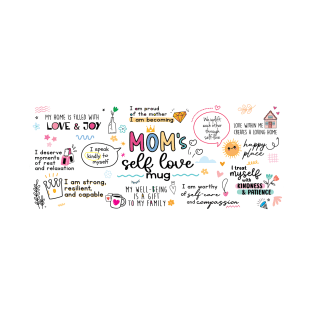 MY HOME IS FILLED WITH
LOVE & JOY
I am proud
of the mother
I am becoming
We uplift
each other
through
self-love
LOVE WITHIN ME
CREATES A LOVING HOME
I deserve
moments
of rest
and relaxation
I speak
kindly to
myself
MOM'S
self love
mug
happy
place
I treat
myself
with
KINDNESS
& PATIENCE
I am strong,
resilient,
and capable
MY WELL-BEING
IS A GIFT
TO MY FAMILY
I am worthy
of self-care
and compassion